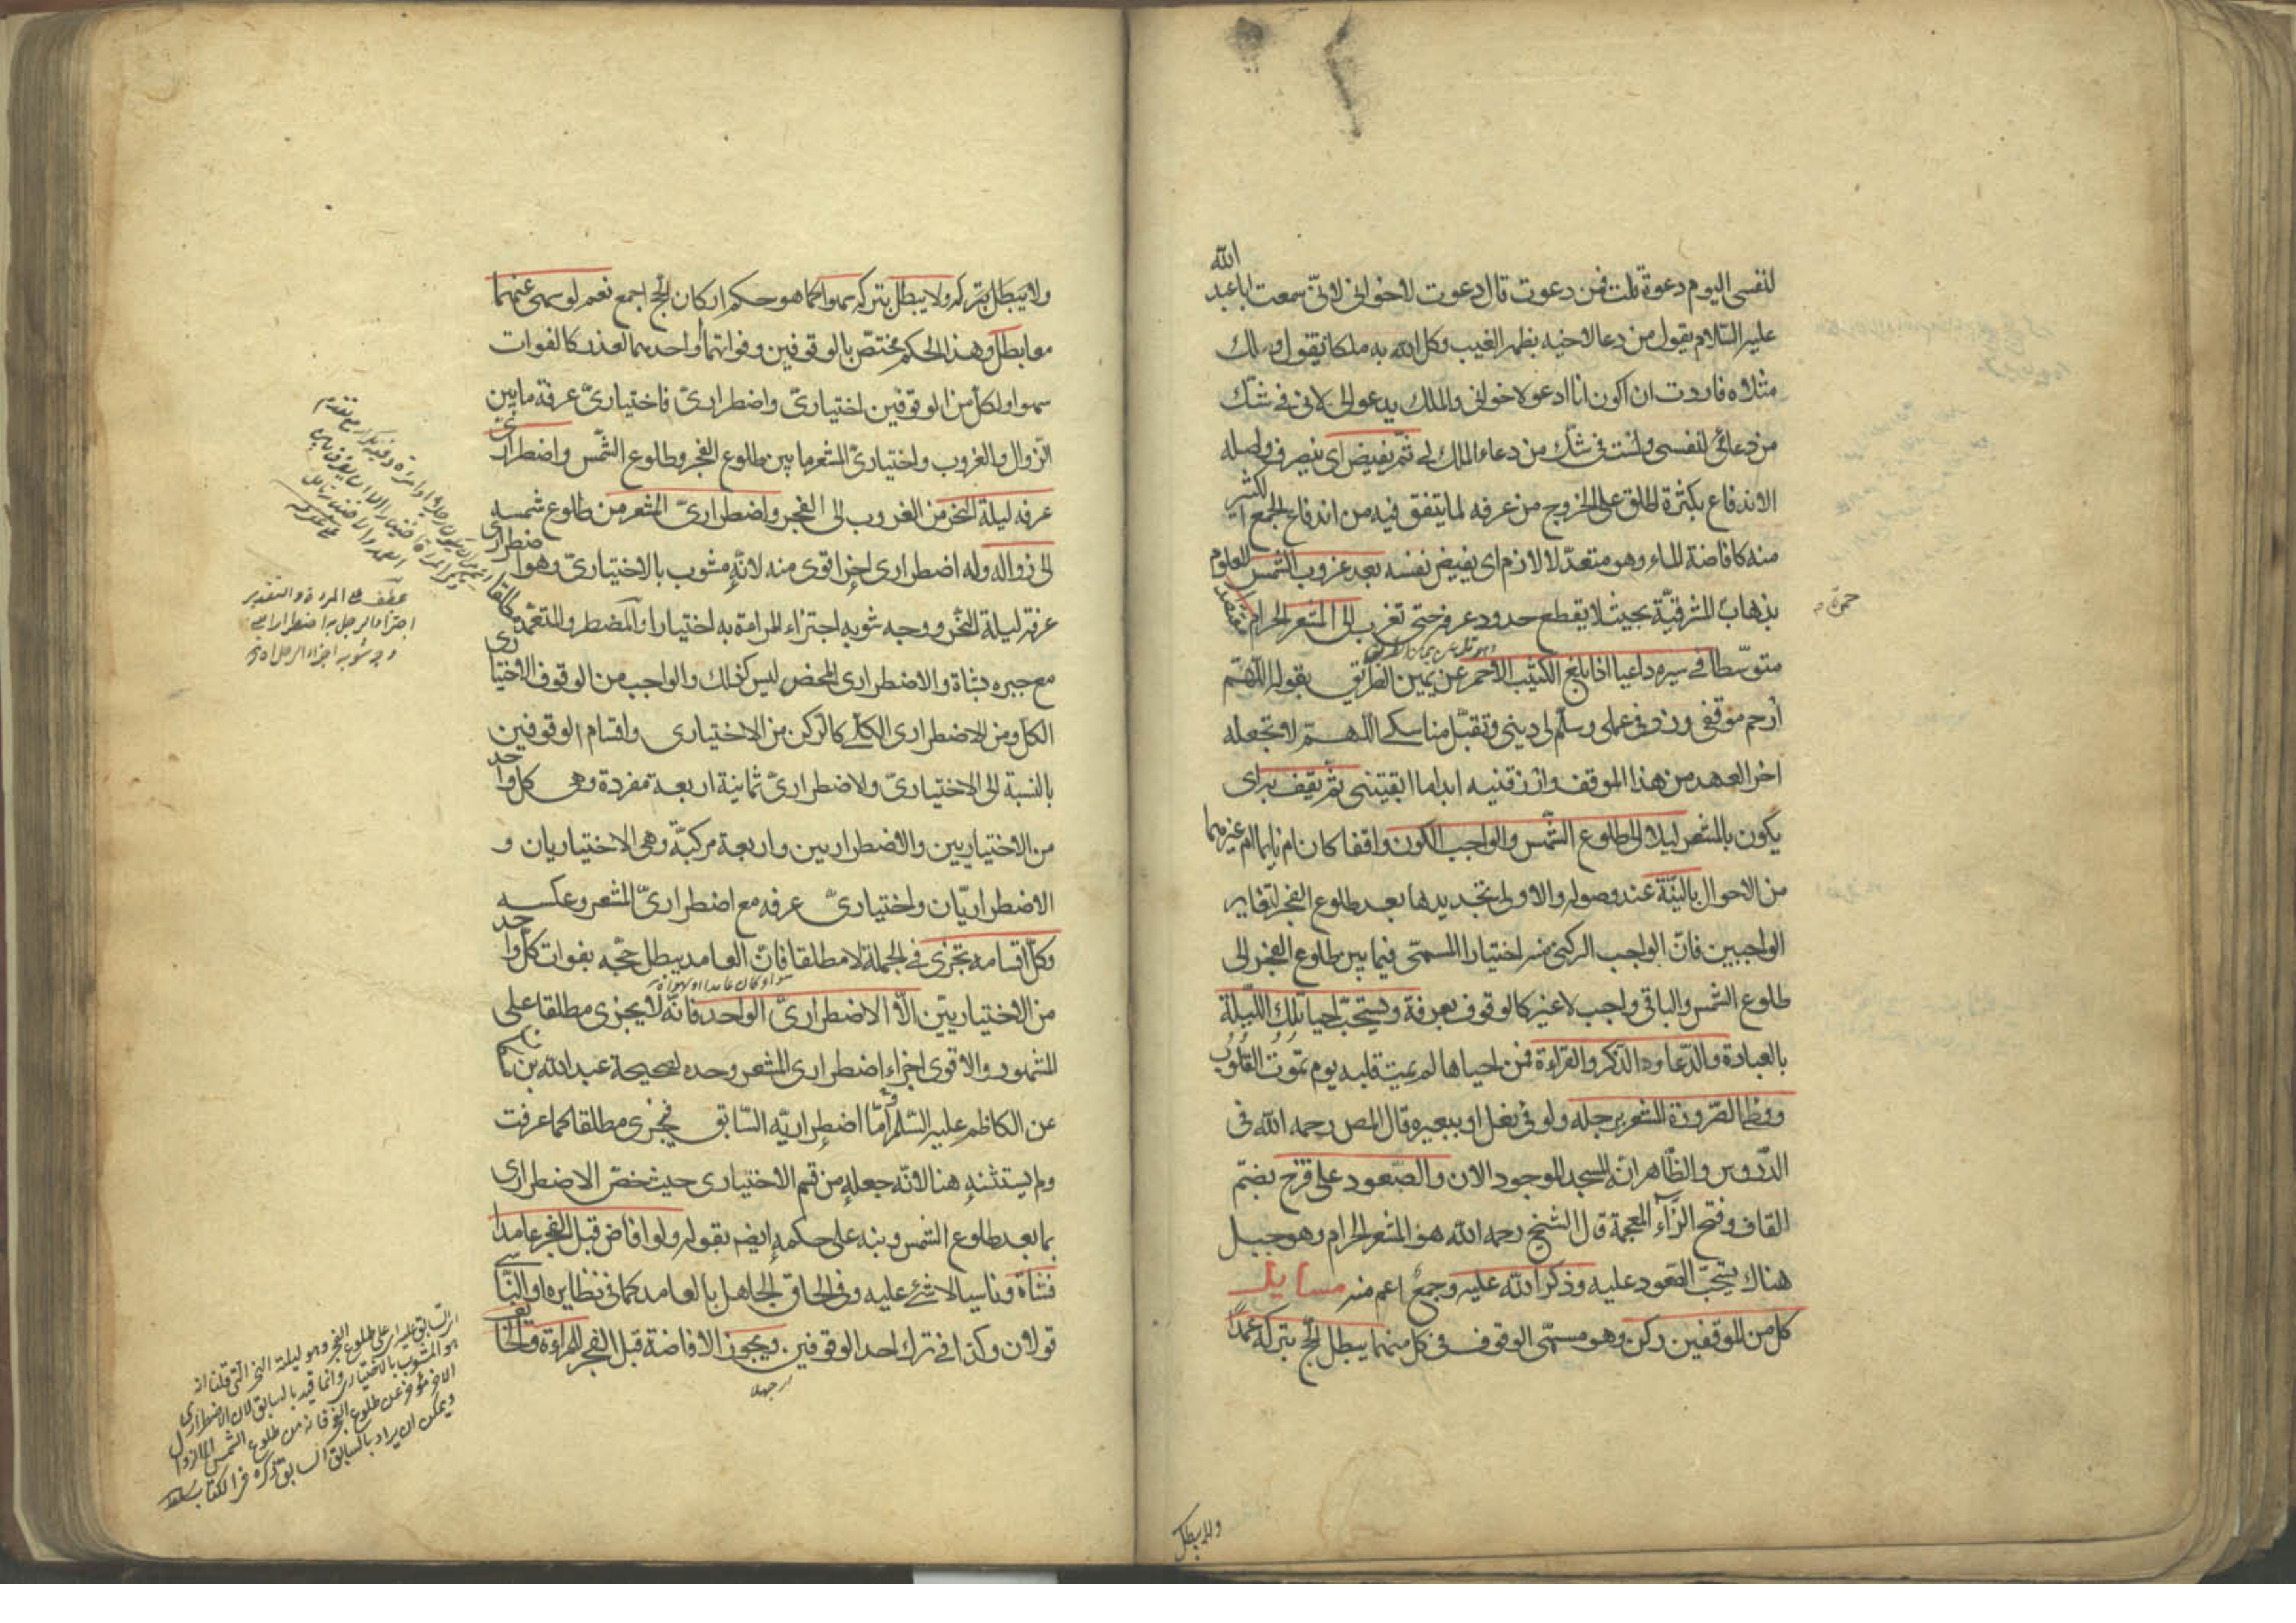 الله
لنفسى اليوم دعوة قلت فمن دعوت قال دعوت لاخوانى لانى سمعت ابا عبد
عليه السلام يقول من دعا لاخيه بظهر الغيب وكل الله به ملكا يقول ولك
مثلاه فاردت ان اكون انا ادعو لاخوانى والملك يدعو لى لانى فى شك
من دعائى لنفسى ولست فى شك من دعاء الملك لى ثم يفيض اى ينصرف واصله
الاندفاع بكثرة اطلق على الخروج من عرفه لما يتفق فيه من اندفاع الجمع الكثير
منه كافاضة الماء وهو متعد لا لازم اى يفيض نفسه بعد غروب الشمس المعلوم
بذهاب المشرقية بحيث لا يقطع حدود عرفه حتى تغرب الى المشعر الحرام مقتصدا
متوسطا فى سيره داعيا اذا بلغ الكثيب الاحمر عن يمين الطريق بقوله اللهم
ارحم موقفى وزد فى عملى وسلم لى دينى وتقبل مناسكى اللهم لا تجعله
اخر العهد من هذا الموقف وارزقنيه ابدا ما ابقيتنى ثم يقف به اى
يكون بالمشعر ليلا الى طلوع الشمس والواجب الكون واقفا كان ام نايما ام غيرهما
من الاحوال بالنية عند وصوله والاولى تجديدها بعد طلوع الفجر لتغاير
الواجبين فان الواجب الركنى منه اختيارا المسمى فيما بين طلوع الفجر الى
طلوع الشمس والباقى واجب لا غير كالوقوف بعرفة ويستحب احيا تلك الليلة
بالعبادة والدعاء والذكر والقراءة فمن احياها لم يمت قلبه يوم تموت القلوب
ووطا الصرورة المشعر برجله ولو فى نعل او ببعيره قال المص رحمه الله فى
الدروس والظاهر انه المسجد الموجود الان والصعود على قزح بضم
القاف وفتح الزاء المعجمة قال الشيخ رحمه الله هو المشعر الحرام وهو جبل
هناك يستحب الصعود عليه وذكر الله عليه وجمع اعم منه مسايل
كل من الموقفين ركن وهو مسمى الوقوف فى كل منهما يبطل الحج بتركه عمدا
ولا يبطل
حمرة
ولا يبطل بتركه ولا يبطل بتركه سهوا كما هو حكم اركان الحج اجمع نعم لو سهى عنهما
معا بطل وهذا الحكم مختص بالوقوفين وفواتهما او احدهما لعذر كالفوات
سهوا ولكل من الوقوفين اختيارى واضطرارى فاختيارى عرفة ما بين
الزوال والغروب واختيارى المشعر ما بين طلوع الفجر وطلوع الشمس واضطرارى
عرفه ليلة النحر من الغروب الى الفجر واضطرارى المشعر من طلوع شمسه
الى زواله وله اضطرارى اخر اقوى منه لانه مشوب بالاختيارى وهو اضطرارى
عرفة ليلة النحر ووجه شوبه اجتزاء المراة به اختيارا والمضطر والمتعمد مطلقا
مع جبره بشاة والاضطرارى المحض ليس كذلك والواجب من الوقوف الاختيارى
الكل ومن الاضطرارى الكلى كالركن من الاختيارى واقسام الوقوفين
بالنسبة الى الاختيارى والاضطرارى ثمانية اربعة مفردة وهى كل واحد
من الاختياريين والاضطراريين واربعة مركبة وهى الاختياريان و
الاضطراريان واختيارى عرفه مع اضطرارى المشعر وعكسه
وكل اقسامه تجزى فى الجملة لا مطلقا فان العامد يبطل حجه بفوات كل واحد
من الاختياريين الا الاضطرارى الواحد فانه لا يجزى مطلقا على
المشهور والاقوى اجزاء اضطرارى المشعر وحده لصحيحة عبد الله بن
عن الكاظم عليه السلم اما اضطراريه السابق فيجزى مطلقا كما عرفت
ولم يستثنه هنا لانه جعله من قسم الاختيارى حيث خص الاضطرارى
بما بعد طلوع الشمس ونبه على حكمه ايضم بقوله ولو افاض قبل الفجر عامدا
فشاة وناسيا لا شئ عليه وفى الحاق الجاهل بالعامد كما فى نظايره او الناسى
قولان وكذا فى ترك احد الوقوفين ويجوز الافاضة قبل الفجر للمراءة والخائف
جهلا
عطف على المراة والتقدير
اجتزاء الرجل به اضطرارا
ووجه شوبه اجزاء الرجل
اى السابق عليه اى على طلوع الفجر وهو ليلة النحر التى قلنا انه
هو المشوب بالاختيارى وانما قيد بالسابق لان الاضطرارى
الاخر مؤخر عن طلوع الفجر فانه من طلوع الشمس الى الزوال
ويمكن ان يراد بالسابق السابق ذكره فى الكتاب